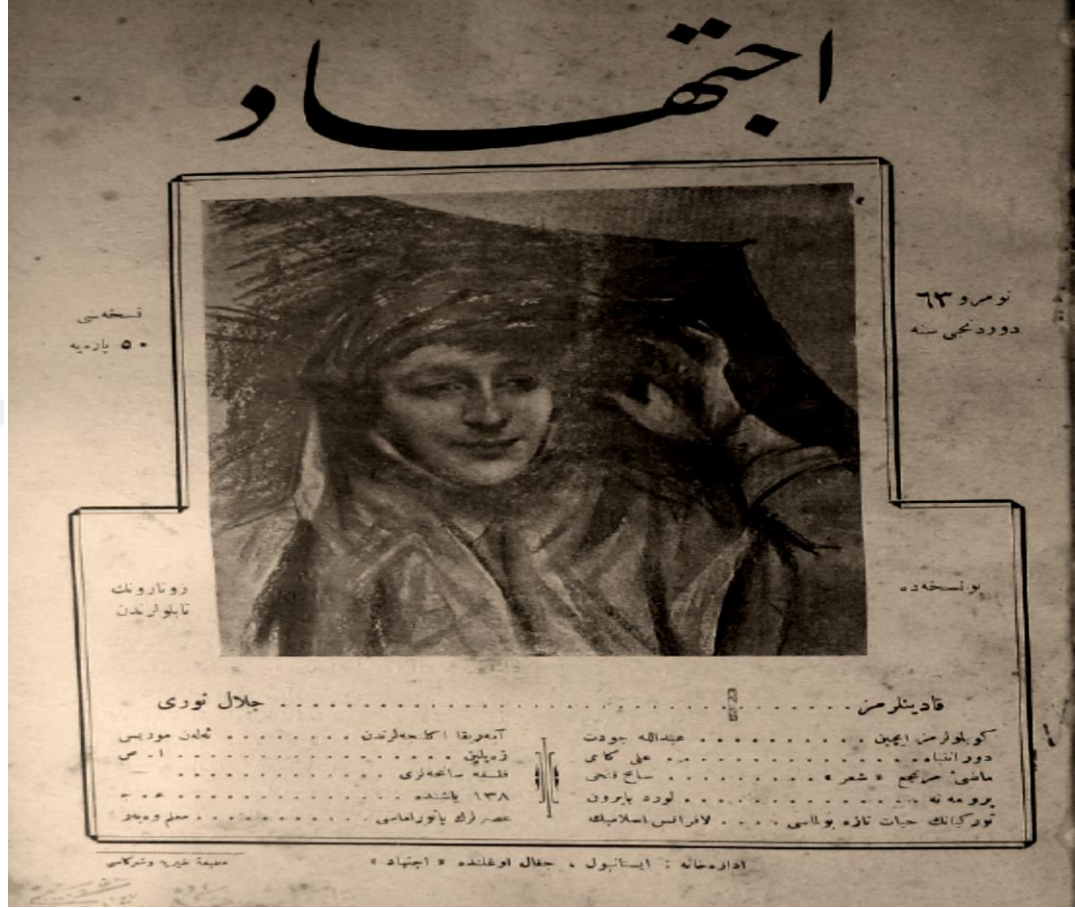 اجتهاد
نومرو ٦٣
دوردنجی سنه
نسخه‌سی
٥٠ پاره‌یه
بو نسخه‌ده
زونارونك
تابلولرندن
قادینلرمز . . . . . جلال نوری
كویلولرمز ایچین . . . . . عبدالله جودت
دور انتباه . . . . . علی كامی
ماضیٔ « شعر » . . . . . صالح فتحی
پرومه ته . . . . . لورد بایرون
توركیانك حیات تازه بولماسی . . . . . لافرانس اسلامیك
آمریقا . . . . . ئه‌لەن موریسی
زه‌پلین . . . . . ا . ص
فلسفه سانحه‌لری . . . . .
١٣٨ یاشنده . . . . . ع . ج
عصر لرك پانوراماسی . . . . . معلم وه‌بەر
اداره‌خانه : ایستانبول ، جغال اوغلنده « اجتهاد »
مطبعهٔ خیریه وشركاسی